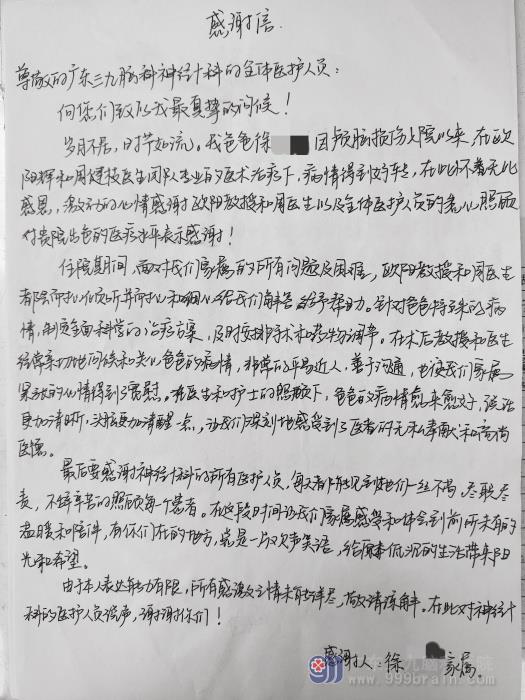 感谢信.
尊敬的广东三九脑科神经计科的全体医护人员：
向您们致以我最真挚的问候！
岁月不居，时节如流。我爸爸徐 因颅脑损伤入院以来，在欧
阳辉和周建枝医生团队专业的医术治疗下，病情得到好转，在此怀着无比
感恩，激动的心情感谢欧阳教授和周医生以及全体医护人员的悉心照顾
付贵院出色的医疗水平表示感谢！
住院期间，面对我们家属的所有问题及困难，欧阳教授和周医生
都会耐心倾听并耐心和细心给我们解答给予帮助。针对爸爸特殊的病
情，制定全面科学的治疗方案，及时安排手术和药物调节。在术后教授和医生
经常亲切地问候和关心爸爸的病情，非常的平易近人，善于沟通，也使我们家属
紧张的心情得到了宽慰。在医生和护士的照顾下，爸爸的病情愈来愈好，说话
更加清晰，头脑更加清醒一点，让我们深刻地感受到了医者的无私奉献和高尚
医德。
最后要感谢神经计科的所有医护人员，每天都能见到他们一丝不苟，尽职尽
责，不辞辛苦的照顾每个患者。在这段时间让我们家属感受和体会到前所未有的
温暖和陪伴，有你们在的地方，就是一片欢声笑语，给原本低沉的生活带来阳
光和希望。
由于本人表达能力有限，所有感激之情未能详尽，敬请谅解。在此对神经计
科的医护人员说声，谢谢你们！
感谢人：徐 家属
www.999brain.com